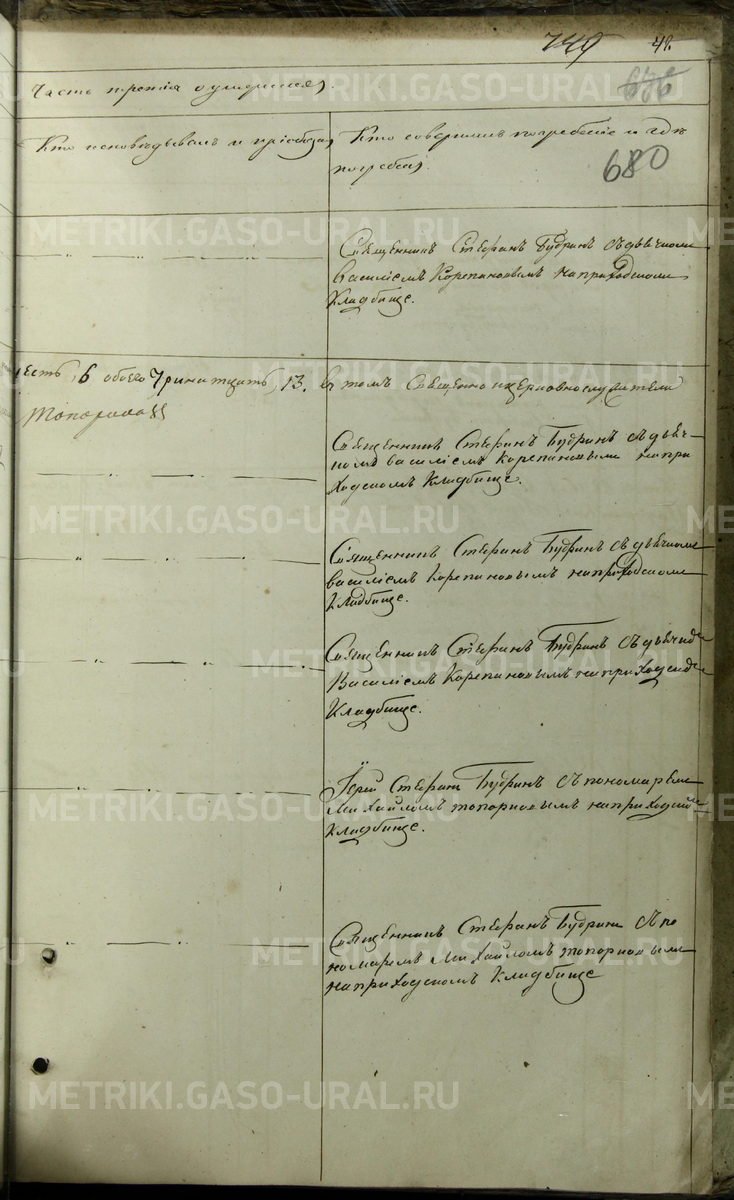 749 48.
676
Часть третiя о умершихъ.
Кто исповѣдывалъ и прiобщалъ
Кто совершалъ погребенiе и гдѣ
погребены.
680
Священникъ Стефанъ Будринъ съ дьячкомъ
Василiемъ Корепановымъ на приходскомъ
Кладбище.
6 обоего Тринатцать, 13. въ томъ Священно и церковнослужители
Топорковъ
Священникъ Стефанъ Будринъ съ дьяч-
комъ василiемъ Корепановымъ на при
ходскомъ Кладбище.
Священникъ Стефанъ Будринъ съ дьячкомъ
василiемъ Корепановымъ на приходскомъ
Кладбище.
Священникъ Стефанъ Будринъ съ дьячко
Василiемъ Корепановымъ на приходско
Кладбище.
Iерей Стефанъ Будринъ съ пономаремъ
Михайломъ топорковымъ на приходско
Кладбище.
Священникъ Стефанъ Будринъ съ по
номаремъ Михайломъ топорковымъ
на приходскомъ Кладбище
METRIKI.GASO-URAL.RU